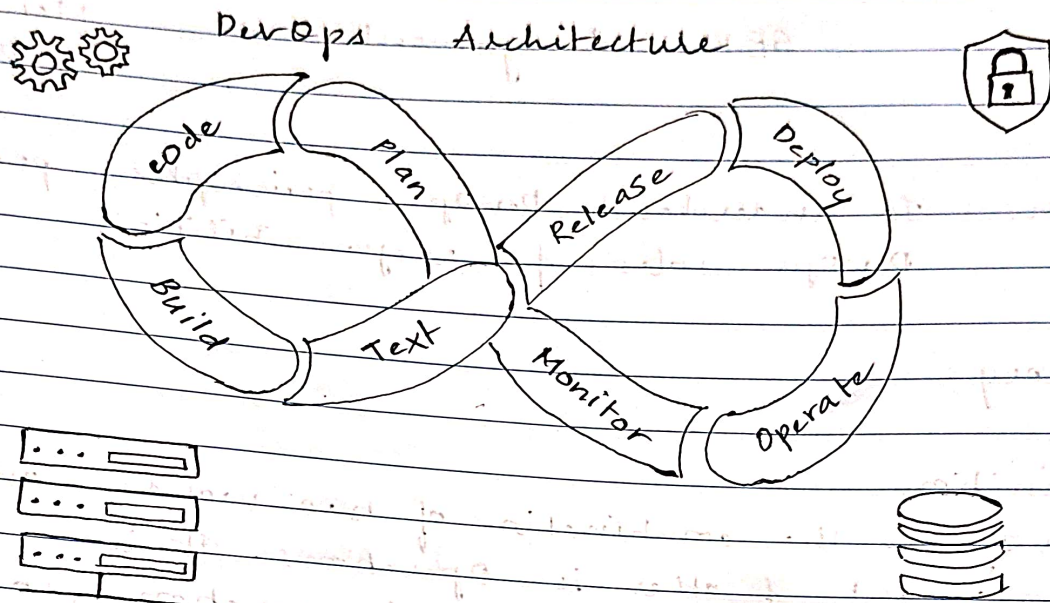 DevOps Architecture
Code
Plan
Build
Text
Release
Deploy
Monitor
Operate